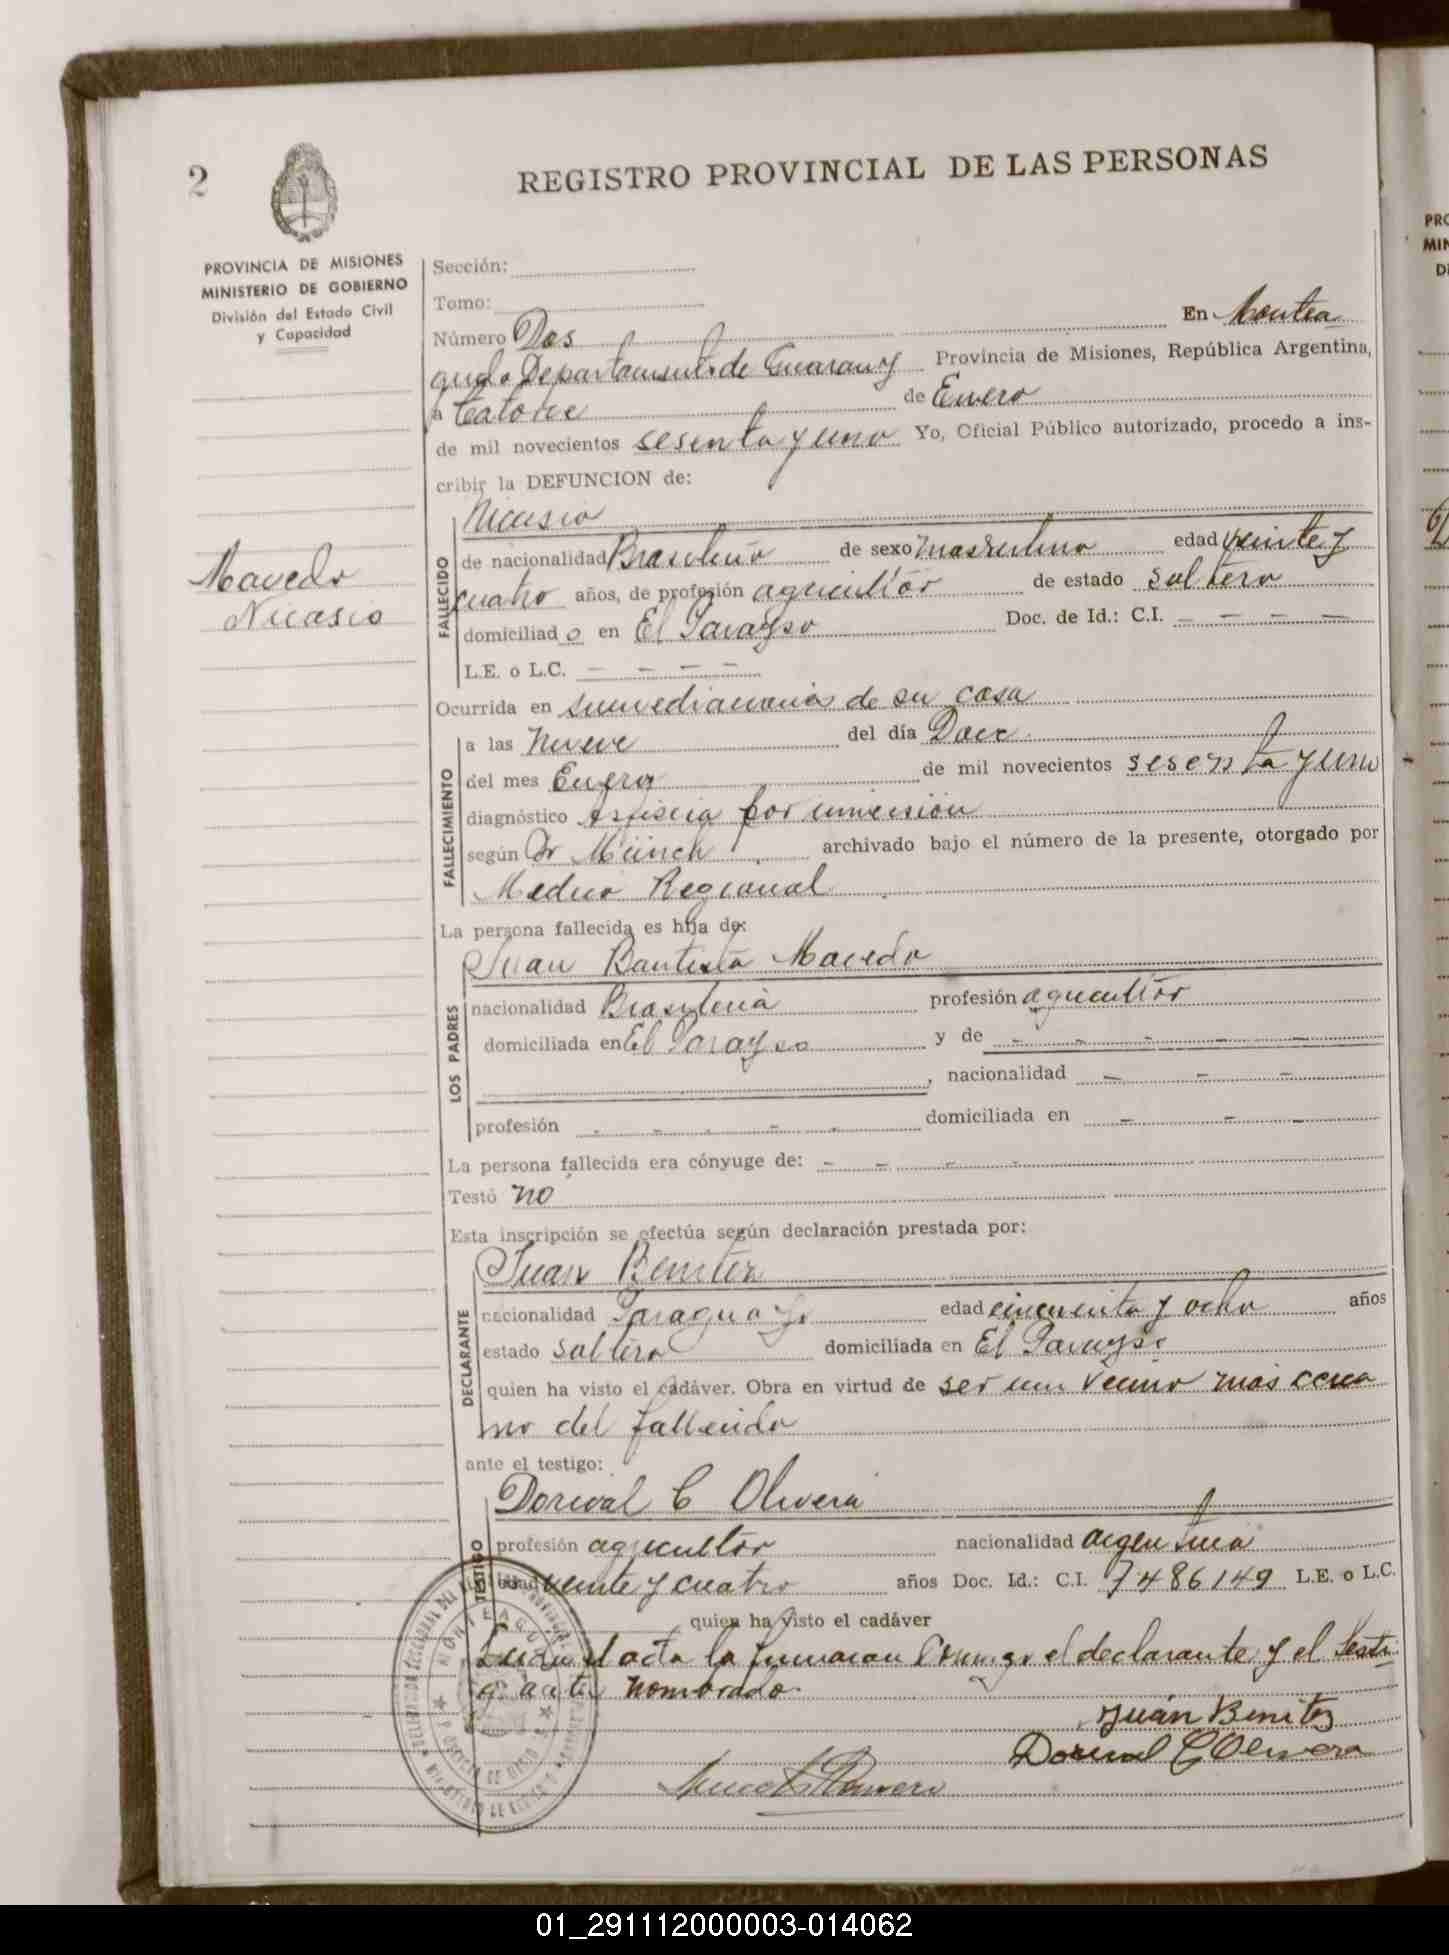 2
REGISTRO PROVINCIAL DE LAS PERSONAS
PROVINCIA DE MISIONES
MINISTERIO DE GOBIERNO
División del Estado Civil
y Capacidad
Macedo
Nicasio
Sección:
Tomo:
Número Dos En Montea
gudo Departamento de Guarany Provincia de Misiones, República Argentina,
a Catorce de Enero
de mil novecientos sesenta y uno Yo, Oficial Público autorizado, procedo a ins-
cribir la DEFUNCION de:
FALLECIDO
Nicasio
de nacionalidad Brasileño de sexo masculino edad veinte y
cuatro años, de profesión agricultor de estado soltero
domiciliad o en El Parayso Doc. de Id.: C.I. - - - -
L.E. o L.C. - - - -
Ocurrida en de su casa
FALLECIMIENTO
a las Nueve del día Doce
del mes Enero de mil novecientos sesenta y uno
diagnóstico Asfixia por inmersión
según Dr Münch archivado bajo el número de la presente, otorgado por
Medico Regional
La persona fallecida es hija de:
LOS PADRES
Juan Bautista Macedo
nacionalidad Brasileña profesión agricultor
domiciliada en El Parayso y de - - - - -
, nacionalidad - - -
profesión - - - - - domiciliada en - - -
La persona fallecida era cónyuge de: - - - -
Testó no
Esta inscripción se efectúa según declaración prestada por:
DECLARANTE
Juan Benitez
nacionalidad Paraguayo edad cincuenta y ocho años
estado soltero domiciliada en El Parayso
quien ha visto el cadáver. Obra en virtud de ser un vecino más cerca
no del fallecido
ante el testigo:
TESTIGO
Dorival C Olivera
profesión agricultor nacionalidad argentina
edad veinte y cuatro años Doc. Id.: C.I. 7486149 L.E. o L.C.
quien ha visto el cadáver
Leida el acta la firmaran Conmigo el declarante y el testi
go nombrado.
Juán Benitez
Dorival C Olivera
Romero
01_291112000003-014062